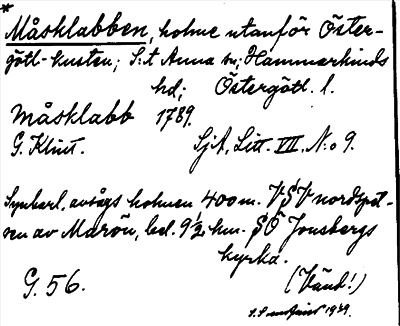 *
Måsklabben, holme utanför Öster-
götl-kusten; S:t Anna sn; Hammarkinds
hd; Östergötl. l.
Måsklabb 1789.
G. Klint. SjA, Litt. VII, N:o 9.
Synbarl. avsågs holmen 400 m. VSV nordspet-
sen av Marön, bel. 9½ km. SÖ Jonsbergs
kyrka.
G. 56. (Vänd!)
1939.